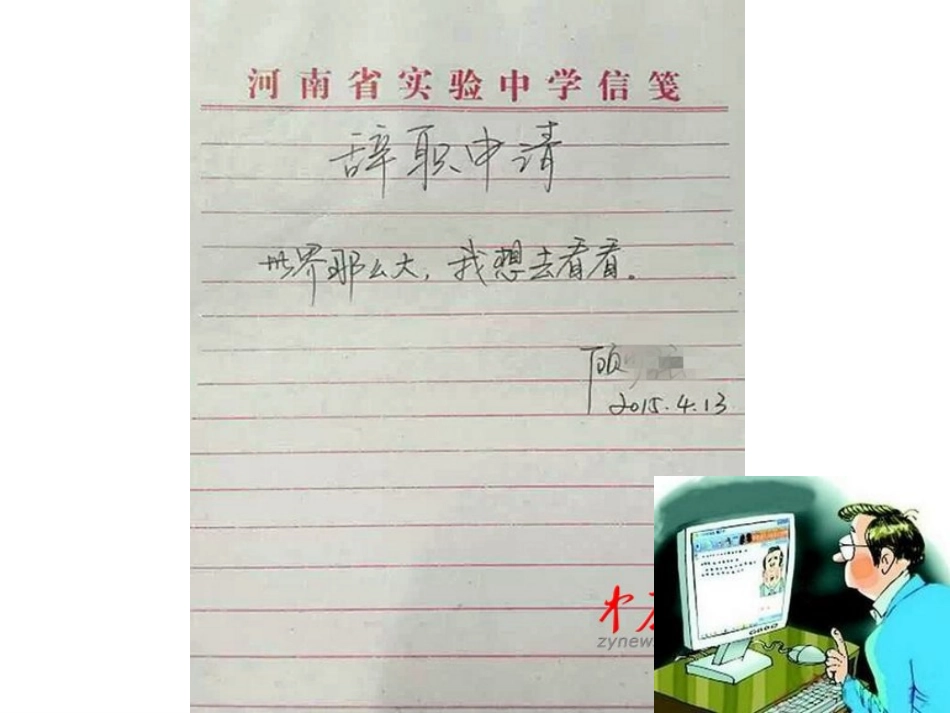 河南省实验中学信笺
辞职申请
世界那么大，我想去看看。
顾
2015.4.13
zynew